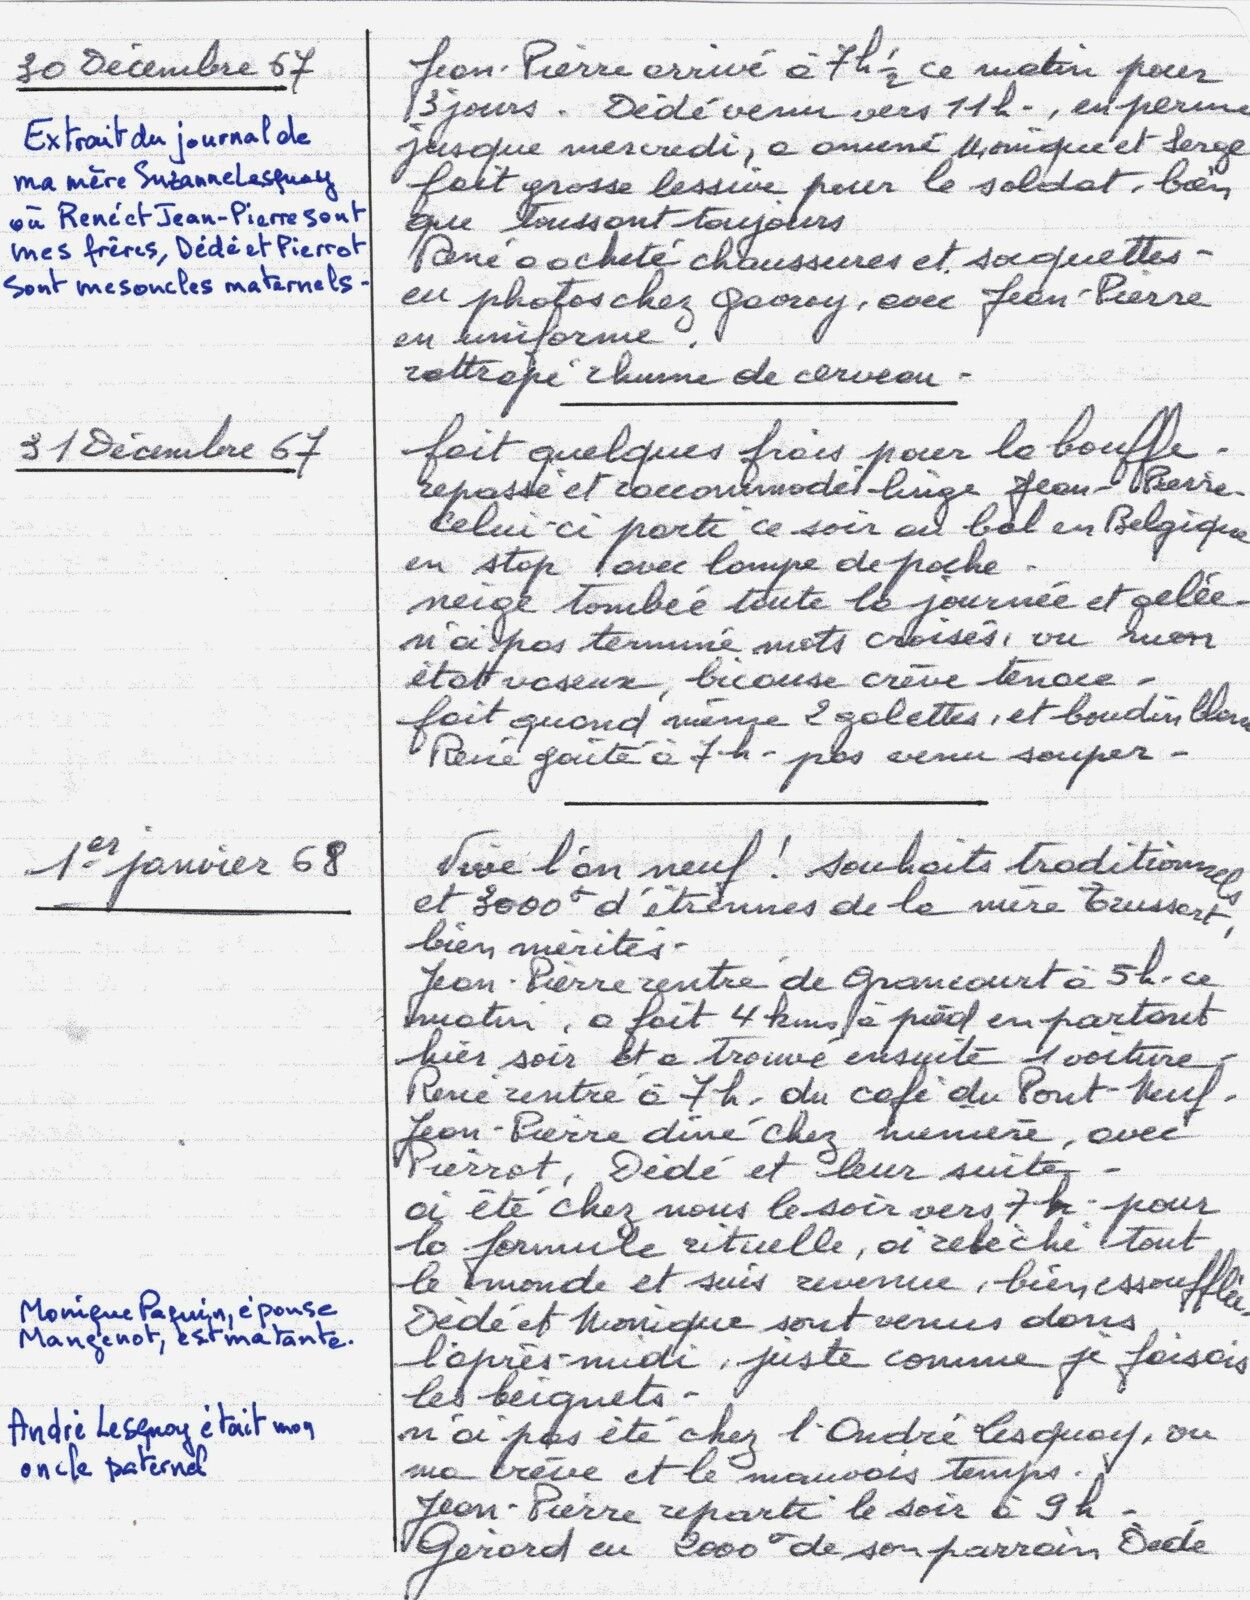 30 Décembre 67
Extrait du journal de
ma mère Suzanne Lesquoy
où René et Jean-Pierre sont
mes frères, Dédé et Pierrot
sont mes oncles maternels -
Jean-Pierre arrivé à 7h ½ ce matin pour
3 jours - Dédé venu vers 11h-, en perme
jusque mercredi, a amené Monique et Serge
fait grosse lessive pour le soldat, bien
que toussant toujours
René a acheté chaussures et soquettes -
eu photos chez Gavroy, avec Jean-Pierre
en uniforme.
rattrapé rhume de cerveau -
31 Décembre 67
fait quelques frais pour la bouffe -
repassé et raccommodé linge Jean-Pierre-
Celui-ci parti ce soir au bal en Belgique
en stop, avec lampe de poche -
neige tombée toute la journée et gelée-
n'ai pas terminé mots croisés, vu mon
état vaseux, bicause crève tenace -
fait quand même 2 galettes, et boudin blanc
René gaîté à 7h- pas venu souper -
1er janvier 68
Vive l'an neuf! souhaits traditionnels
et 3000 d'étrennes de la mère Trussart,
bien mérités-
Jean-Pierre rentré de Grancourt à 5h- ce
matin, a fait 4 kms à pied en partant
hier soir et a trouvé ensuite 1 voiture -
René rentré à 7h, du café du Pont-Neuf.
Jean-Pierre dîné chez mémère, avec
Pierrot, Dédé et leur suite -
ai été chez nous le soir vers 7h- pour
la formule rituelle, ai reléché tout
le monde et suis revenue, bien essoufflée
Dédé et Monique sont venus dans
l'après-midi, juste comme je faisais
les beignets-
n'ai pas été chez l'André Lesquoy, vu
ma crève et le mauvais temps.
Jean-Pierre reparti le soir à 9h -
Gérard eu 2000 de son parrain Dédé
Monique Paquin, épouse
Mangenot, est ma tante.
André Lesquoy était mon
oncle paternel